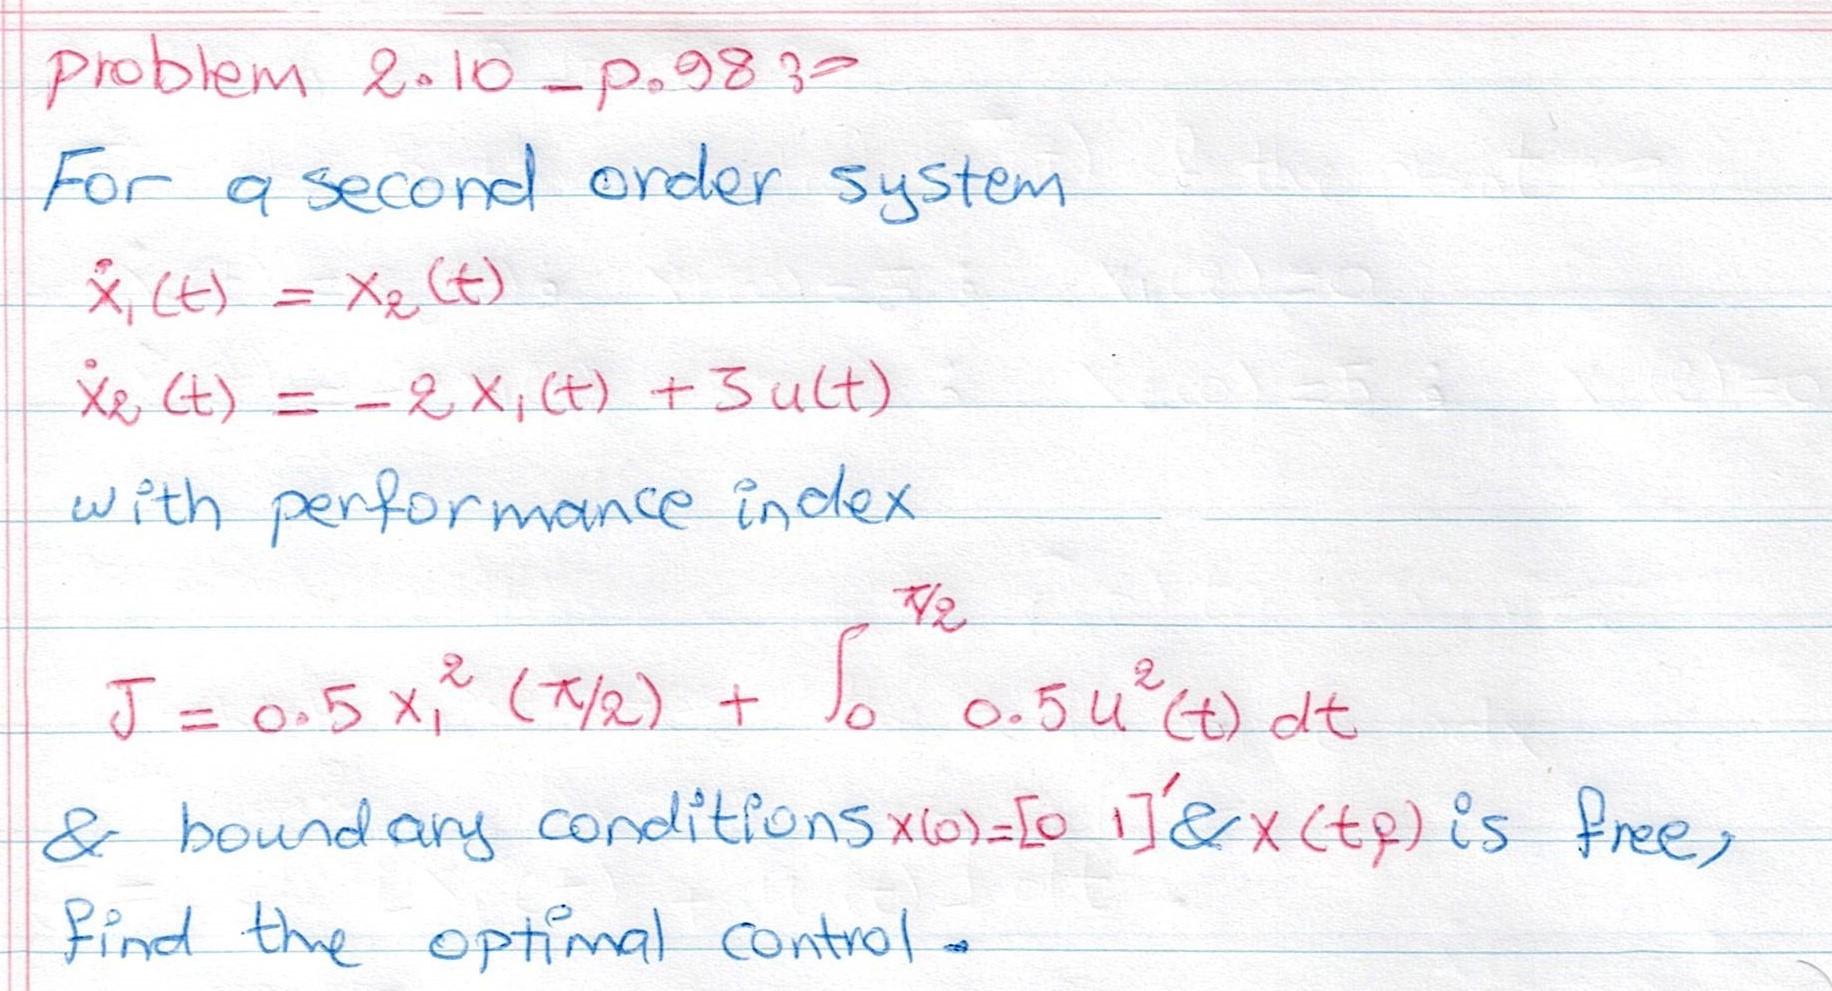 Problem 2.10 - p.98 :-
For a second order system
ẋ₁(t) = x₂(t)
ẋ₂(t) = -2x₁(t) + 3u(t)
with performance index
J = 0.5 x₁²(π/2) + ∫₀^π/2 0.5 u²(t) dt
& boundary conditions x(0)=[0 1]' & x(tf) is free,
find the optimal control.